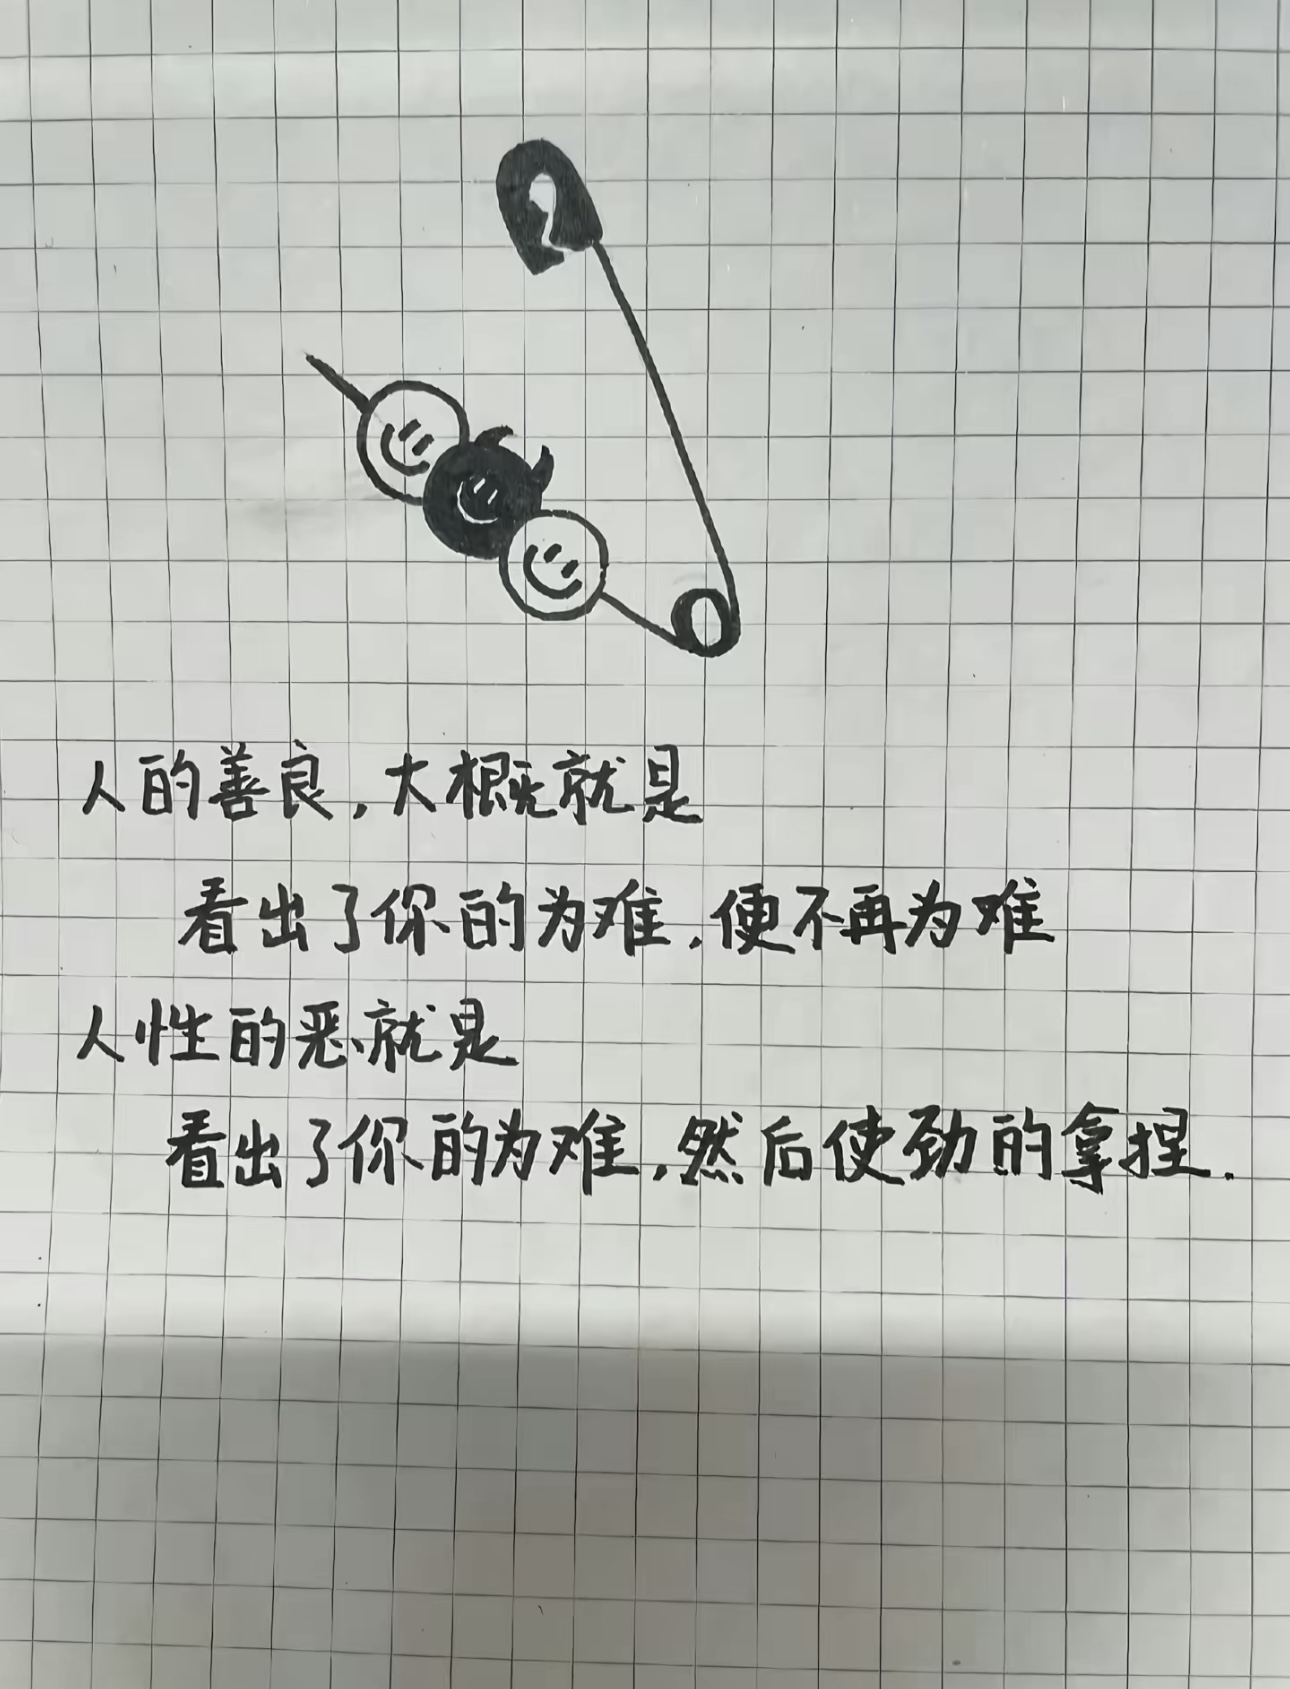 人的善良，大概就是
看出了你的为难，便不再为难
人性的恶就是
看出了你的为难，然后使劲的拿捏.